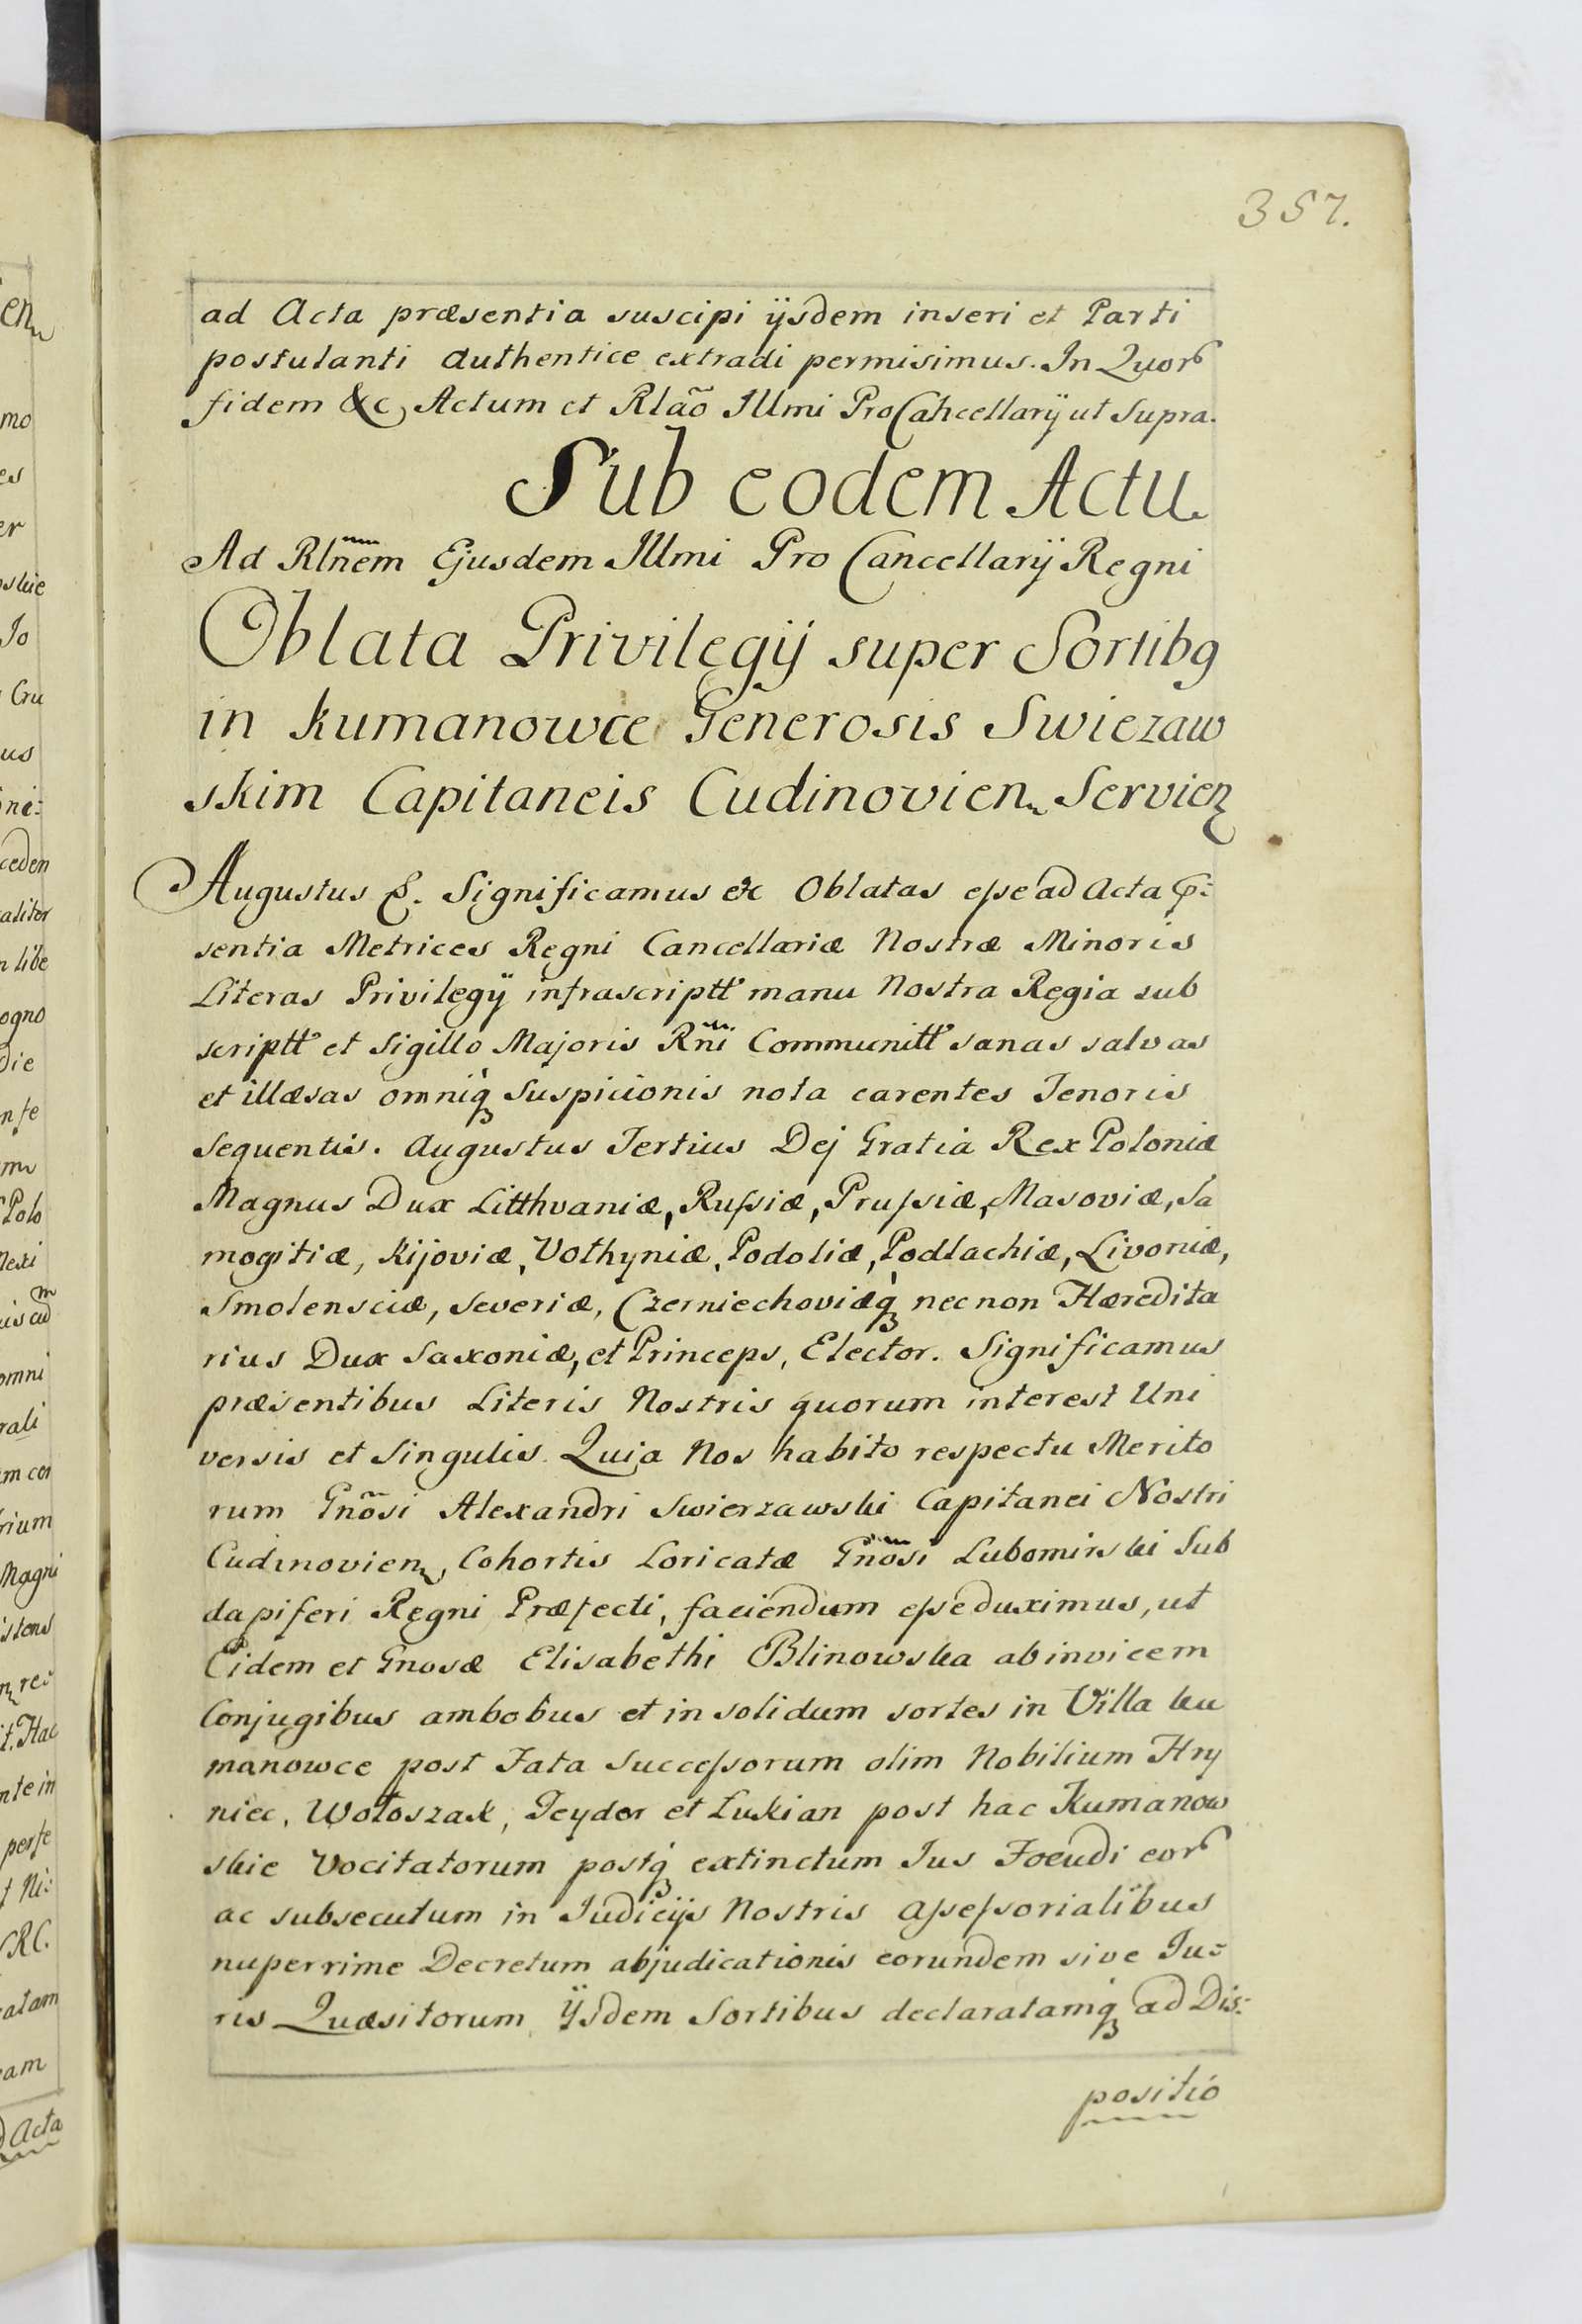 357.
ad Acta præsentia suscipi ijsdem inseri et Parti
postulanti authentice extradi permisimus. In Quor
fidem &c, Actum et Rlão Illmi ProCancellarij ut Supra.
Sub eodem Actu
Ad Rlnem Ejusdem Illmi Pro Cancellarij Regni
Oblata Privilegij super Sortibq
in Kumanowce Generosis Swiezaw
skim Capitaneis Cudinovien Servien
Augustus &. Significamus &c Oblatas esse ad Acta p:
sentia Metrices Regni Cancellariæ Nostræ Minoris
Literas Privilegij infrascriptt manu Nostra Regia sub
scriptt et Sigillo Majoris Rñi Communitt sanas salvas
et illæsas omniq Suspicionis nota carentes Tenoris
Sequentis. Augustus Tertius Dej Gratia Rex Poloniæ
Magnus Dux Litthvaniæ, Russiæ, Prussiæ, Masoviæ, Sa
mogitiæ, Kijoviæ, Volhyniæ, Podoliæ, Podlachiæ, Livoniæ,
Smolensciæ, Severiæ, Czerniechoviæq necnon Hæredita
rius Dux Saxoniæ, et Princeps, Elector. Significamus
præsentibus Literis Nostris quorum interest Uni
versis et Singulis. Quia Nos habito respectu Merito
rum Gnõsi Alexandri Swierzawski Capitanei Nostri
Cudinovien, Cohortis Loricatæ Gnõsi Lubomirski Sub
dapiferi Regni Præfecti, faciendum esse duximus, ut
Eidem et Gnosæ Elisabethi Blinowska ab invicem
Conjugibus ambobus et in solidum sortes in Villa Ku
manowce post Fata Successorum olim Nobilium Hry
niec, Wołoszak, Feydor et Łukian post hac Kumanow
skie Vocitatorum postq extinctum Jus Foeudi eor
ac subsecutum in Judicijs Nostris Assessorialibus
nuperrime Decretum abjudicationis eorundem sive Ju=
ris Quæsitorum Ijsdem Sortibus declaratamq ad Dis:
positió